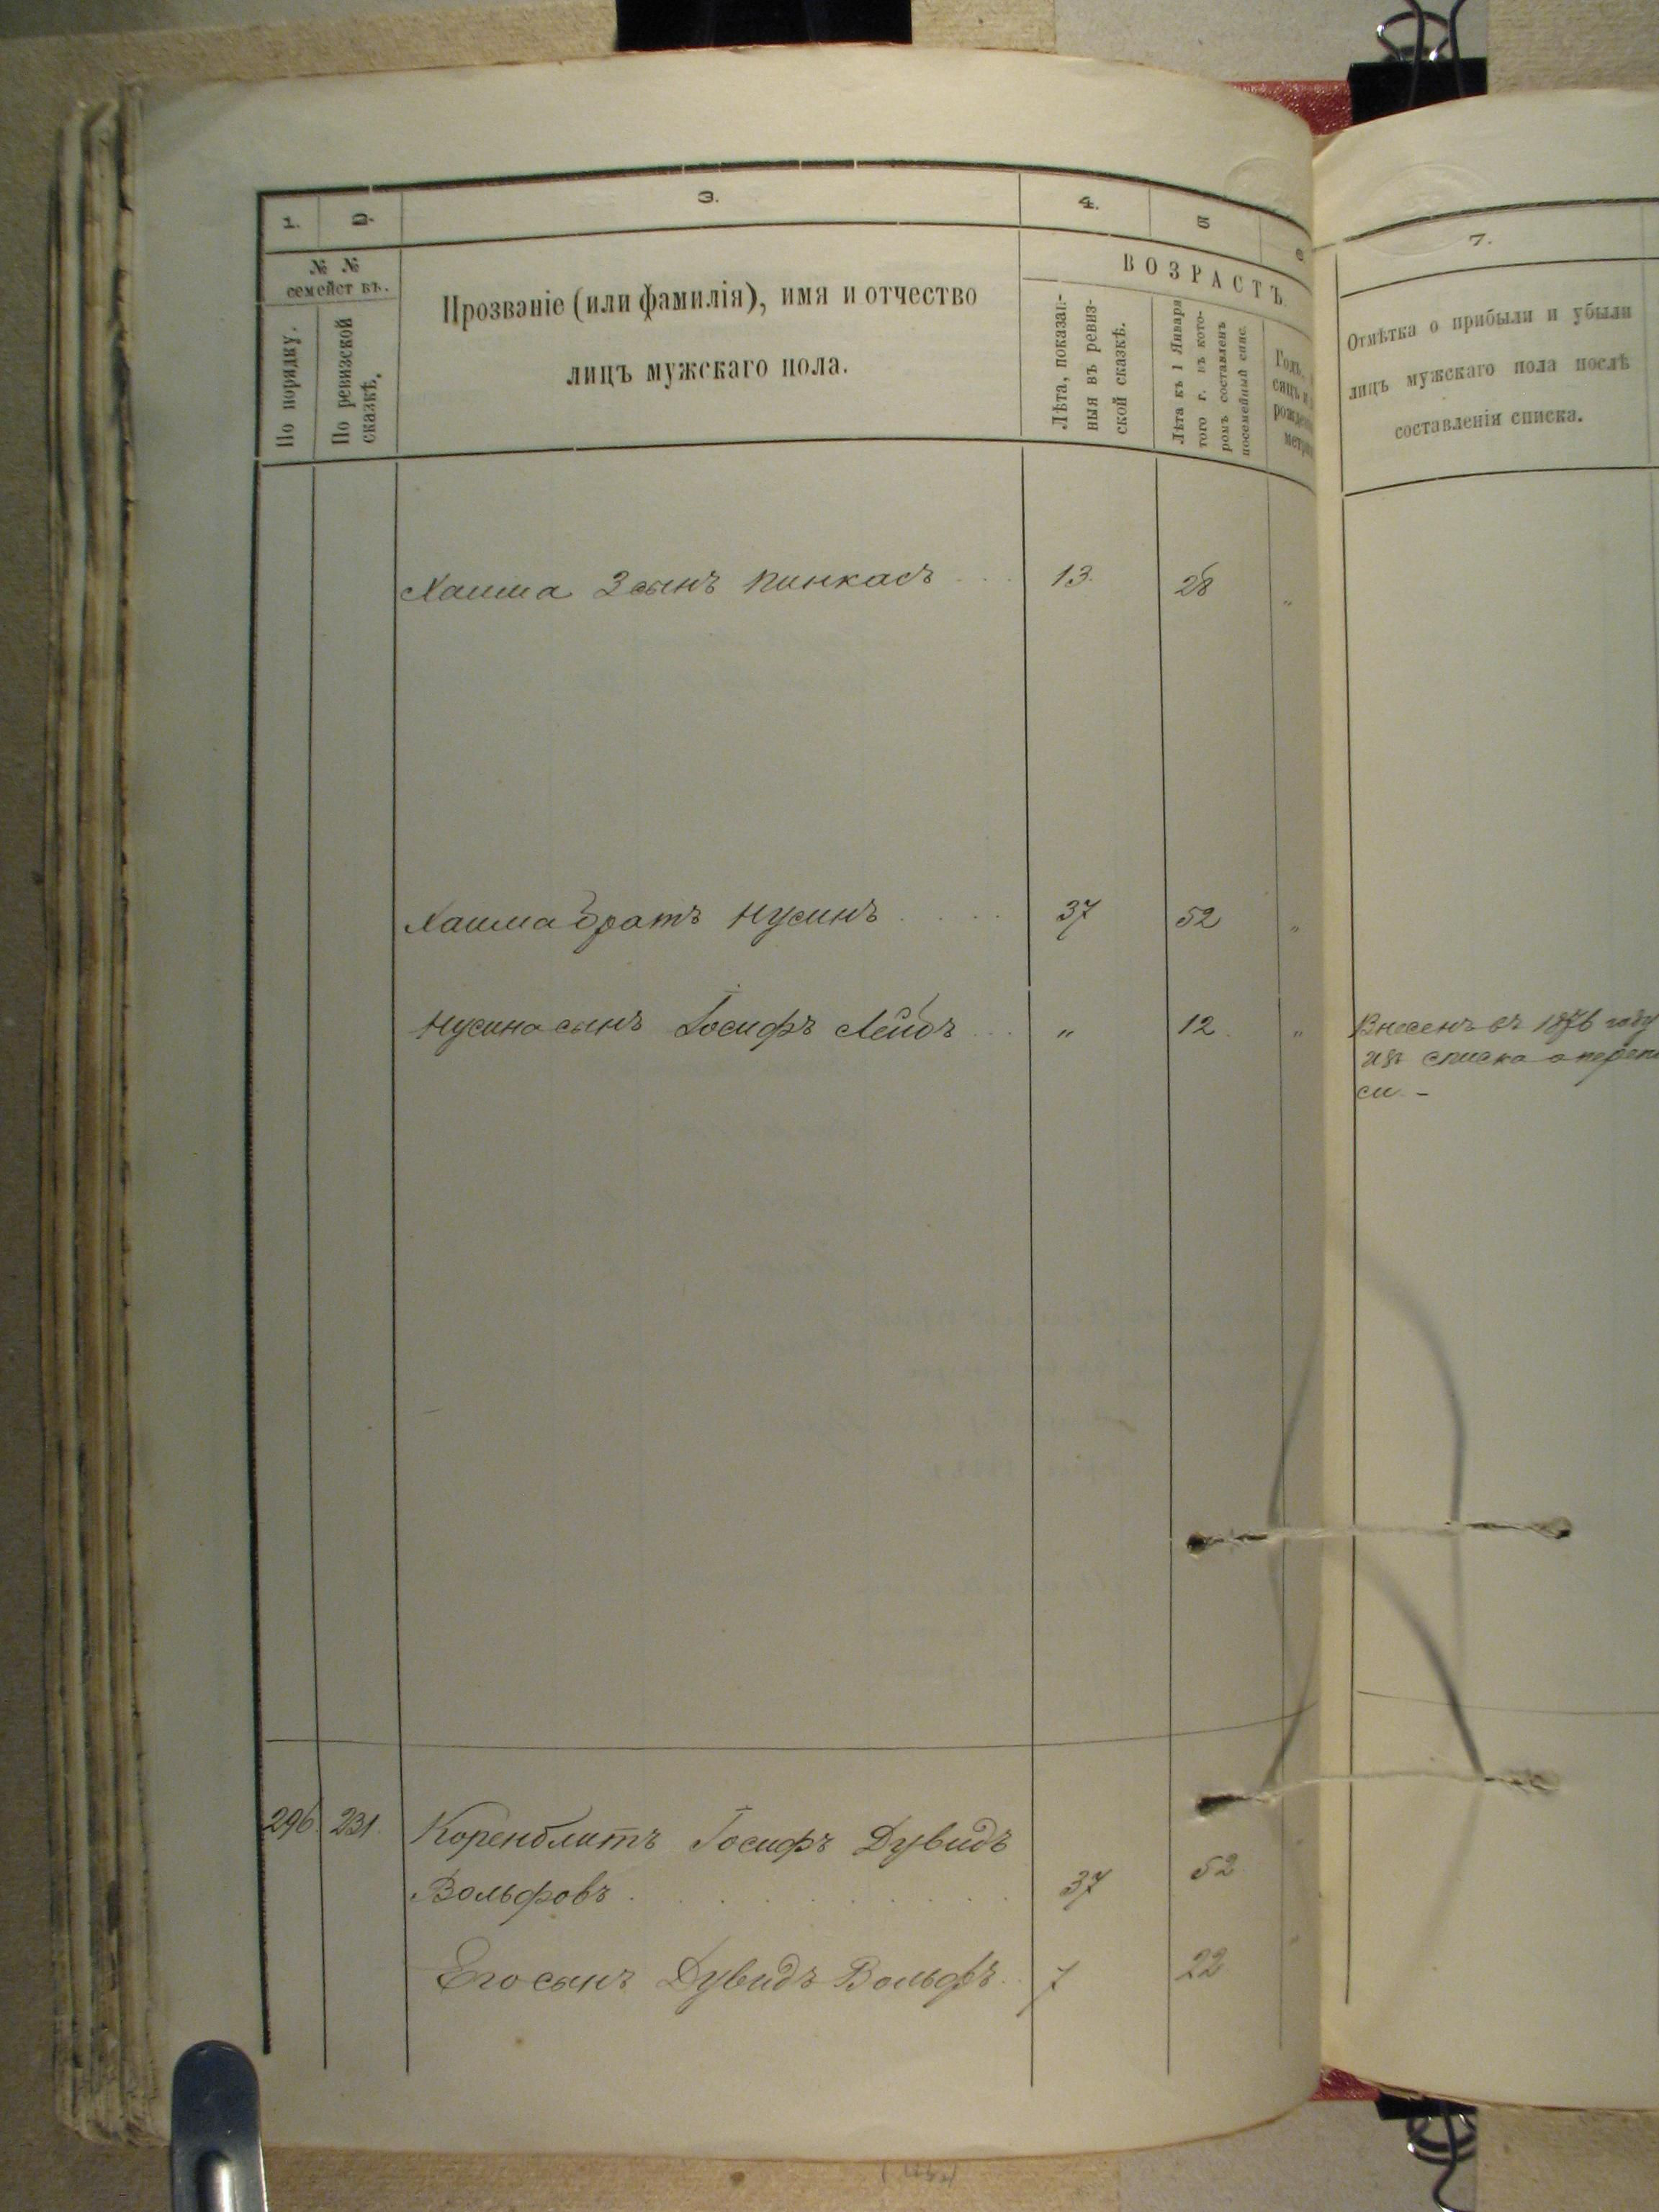 1.
2.
3.
4.
5
6
7.
№ №
семействъ.
По порядку.
По ревизской
сказкѣ.
Прозваніе (или фамилія), имя и отчество
лицъ мужскаго пола.
ВОЗРАСТЪ.
Лѣта, показан-
ныя въ ревиз-
ской сказкѣ.
Лѣта къ 1 Января
того г. въ кото-
ромъ составленъ
посемейный спис.
Годъ,
сяцъ и
рожден
метри
Отмѣтка о прибыли и убыли
лицъ мужскаго пола послѣ
составленія списка.
Хаима 2 сынъ Пинкасъ . . . 13. 28 „
Хаима братъ Нусинъ . . . . 37 52 „
Нусина сынъ Іосифъ Лейбъ . . . „ 12. „ Внесенъ въ 1876 году
изъ списка о переп
си. –
296. 231. Коренблитъ Іосифъ Дувидъ
Вольфовъ . . . . . . . . . 37 52
Его сынъ Дувидъ Вольфъ . . 7 22 „